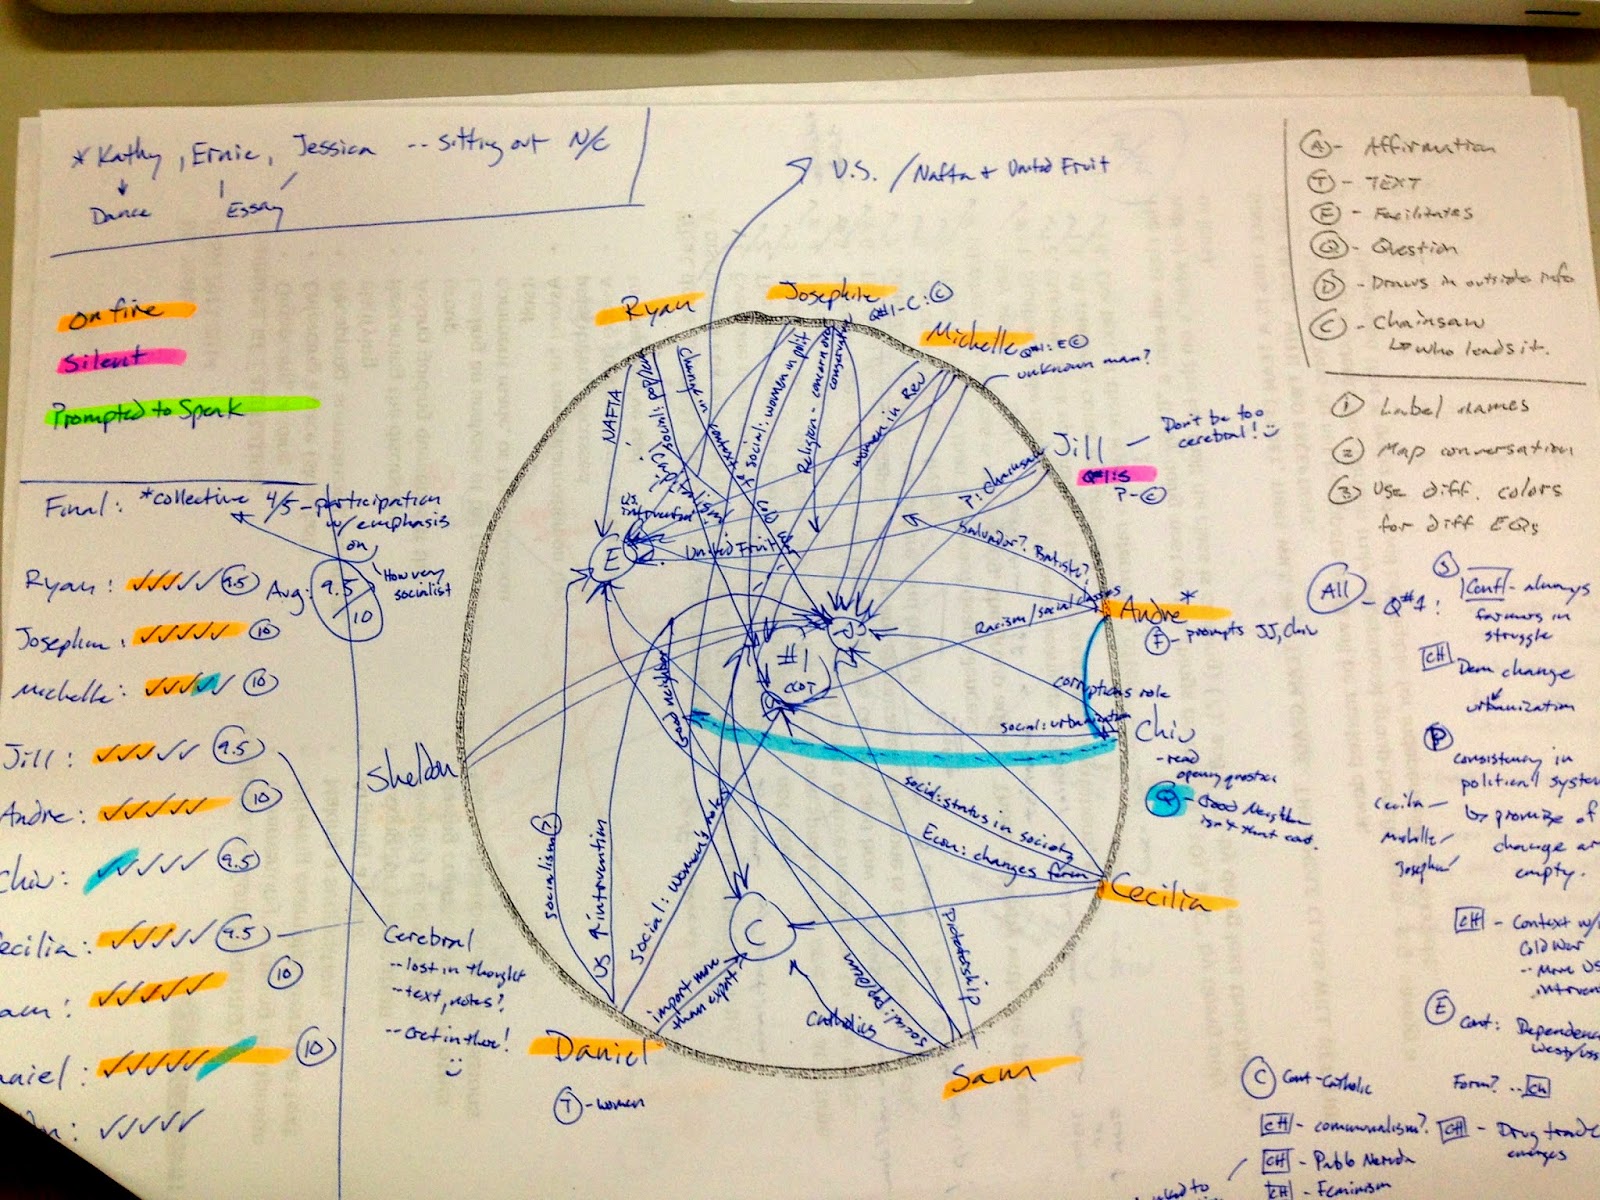 *Kathy, Ernie, Jessica -- sitting out N/C
Dance
Essay
U.S. / Nafta + United Fruit
A - Affirmation
T - TEXT
F - Facilitates
Q - Question
D - Draws in outside info
C - Chainsaw
↳ who leads it.
1 Label names
2 Map conversation
3 Use diff. colors
for diff EQs
On fire
Silent
Prompted to Speak
Ryan
Josephine
Q#1-C: C
Michelle
Q#1: E C
unknown man?
Jill - Don't be too
cerebral!
Q#1:S
P-C
Andre *
F - prompts JJ, Chiv
Chiv
- read
opening question
Q - Good Neighbor
isn't that cool.
Cecilia
Sam
Daniel
T - women
Sheldon
NAFTA
Social: pop/cult
Change in
context to
social: women in polit
Religion - concern over
conservatism
women in Rev
P: chainsaw
Salvador? Batiste?
US
capitalism/
United Fruit
E
#1
C
Racism/social classes
corruptions role
social: urbanization
social: status in society
Econ: changes form
Good neighbor
Socialism?
US intervention
Social: women's roles
import more
than export
Catholics
Dictatorship
Final: *collective 4/5 - participation
w/ emphasis
on
How very
socialist
Avg: 9.5
10
Ryan: ✓✓✓✓✓ 9.5
Josephin: ✓✓✓✓✓ 10
Michelle: ✓✓✓✓✓ 10
Jill: ✓✓✓✓✓ 9.5
Andre: ✓✓✓✓✓ 10
Chiv: ✓✓✓✓✓ 9.5
ecilia: ✓✓✓✓✓ 9.5
am: ✓✓✓✓✓ 10
aniel: ✓✓✓✓✓ 10
✓✓✓✓✓
Cerebral
-- lost in thought
-- text, notes?
-- Get in there!
All - Q#1:
S Cont - always
farmers in
struggle
CH Dem change
urbanization
P consistency in
political system
↳ promise of
change are
empty.
Cecilia -
Michelle
Josephin
CH - Context w/
Cold War
-- More US
E Cont: Dependence
Form? .. CH
C Cont-Catholic
CH - communalism?
CH - Drug trade
emerges
CH - Pablo Neruda
CH - Feminism